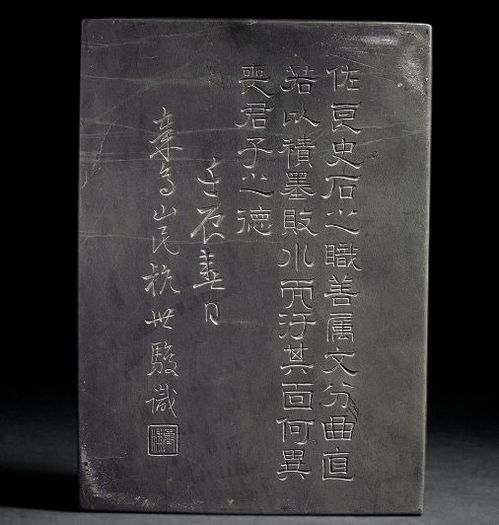 佐良史石之職善属文分曲直
若以積墨敗水而汙其面何異
喪君子之德
壬辰春日
秦亭山民杭世駿識